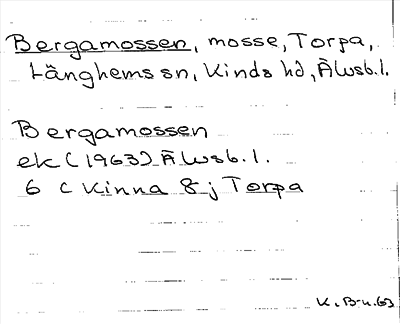 Bergamossen, mosse, Torpa,
Länghems sn, Kinds hd, Älvsb.l.
Bergamossen
ek (1963) Älvsb.l.
6 C Kinna 8 j Torpa
K.B-n.63